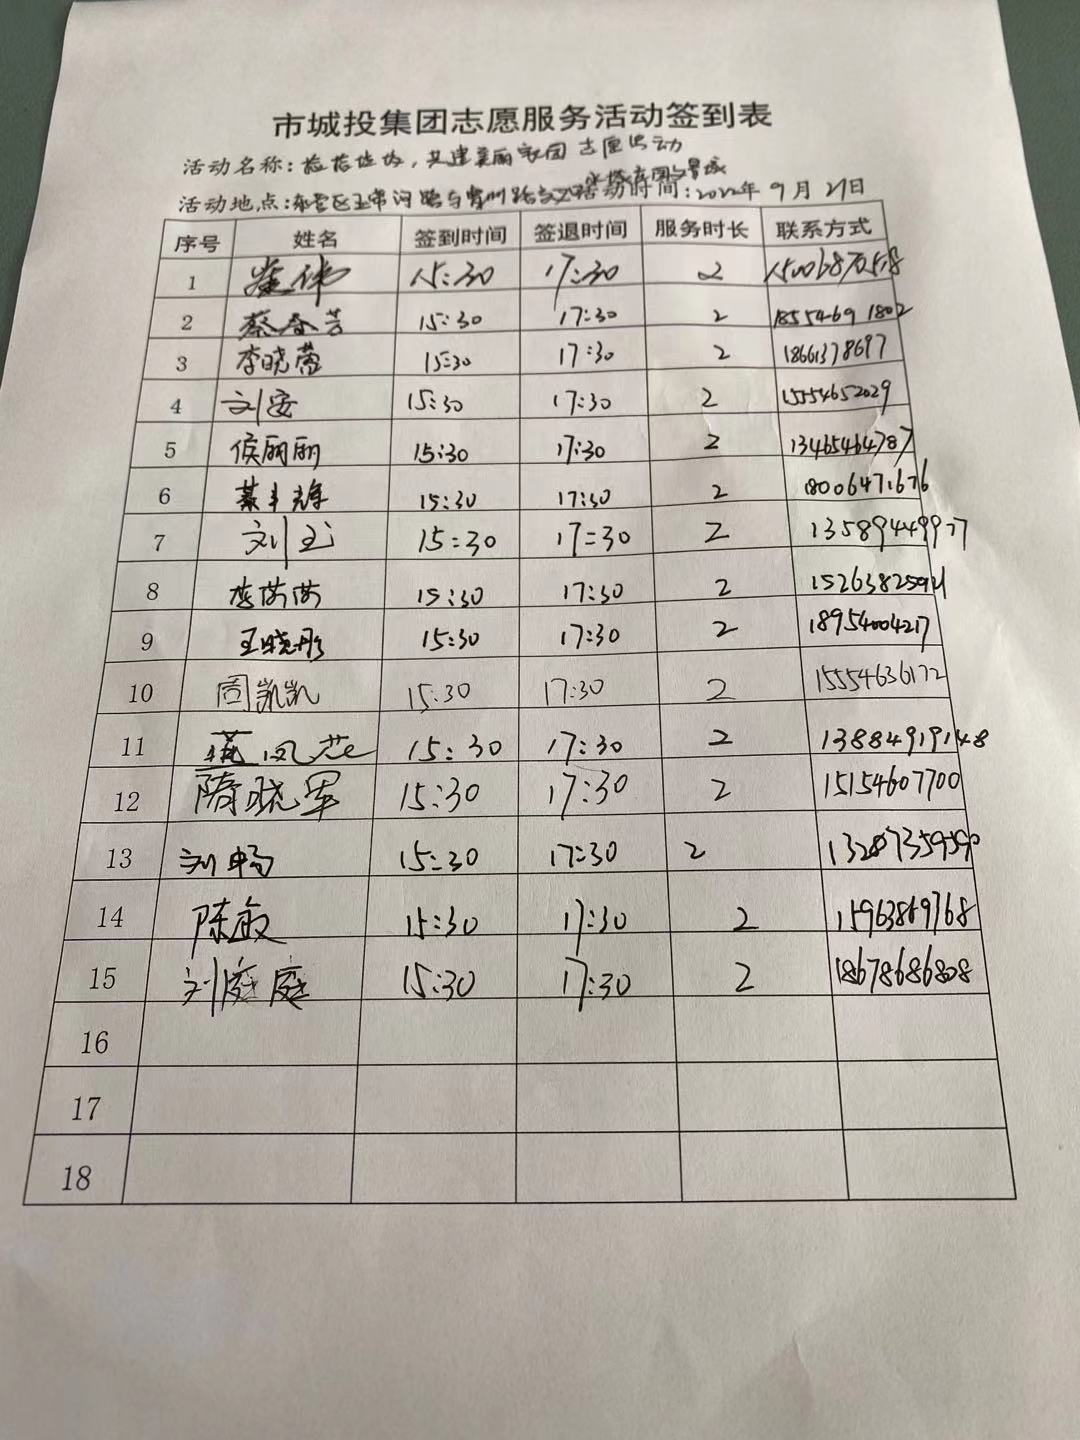 市城投集团志愿服务活动签到表
活动名称：捡拾垃圾，共建美丽家园志愿活动
活动地点：东营区 路与 路 活动时间：2022年9月27日
序号 姓名 签到时间 签退时间 服务时长 联系方式
1 伟 15:30 17:30 2
2 蔡春芳 15:30 17:30 2 18554691802
3 李晓蕾 15:30 17:30 2 18661378697
4 刘安 15:30 17:30 2 15554652029
5 侯丽丽 15:30 17:30 2 13465464787
6 15:30 17:30 2 18006471676
7 刘玉 15:30 17:30 2 13589449977
8 李茵茵 15:30 17:30 2
9 王晓彤 15:30 17:30 2 18954004217
10 周凯凯 15:30 17:30 2 15554636172
11 15:30 17:30 2 13884919148
12 隋晓军 15:30 17:30 2 15154607700
13 刘畅 15:30 17:30 2
14 陈敏 15:30 17:30 2 15963869768
15 刘庭庭 15:30 17:30 2 18678686808
16
17
18